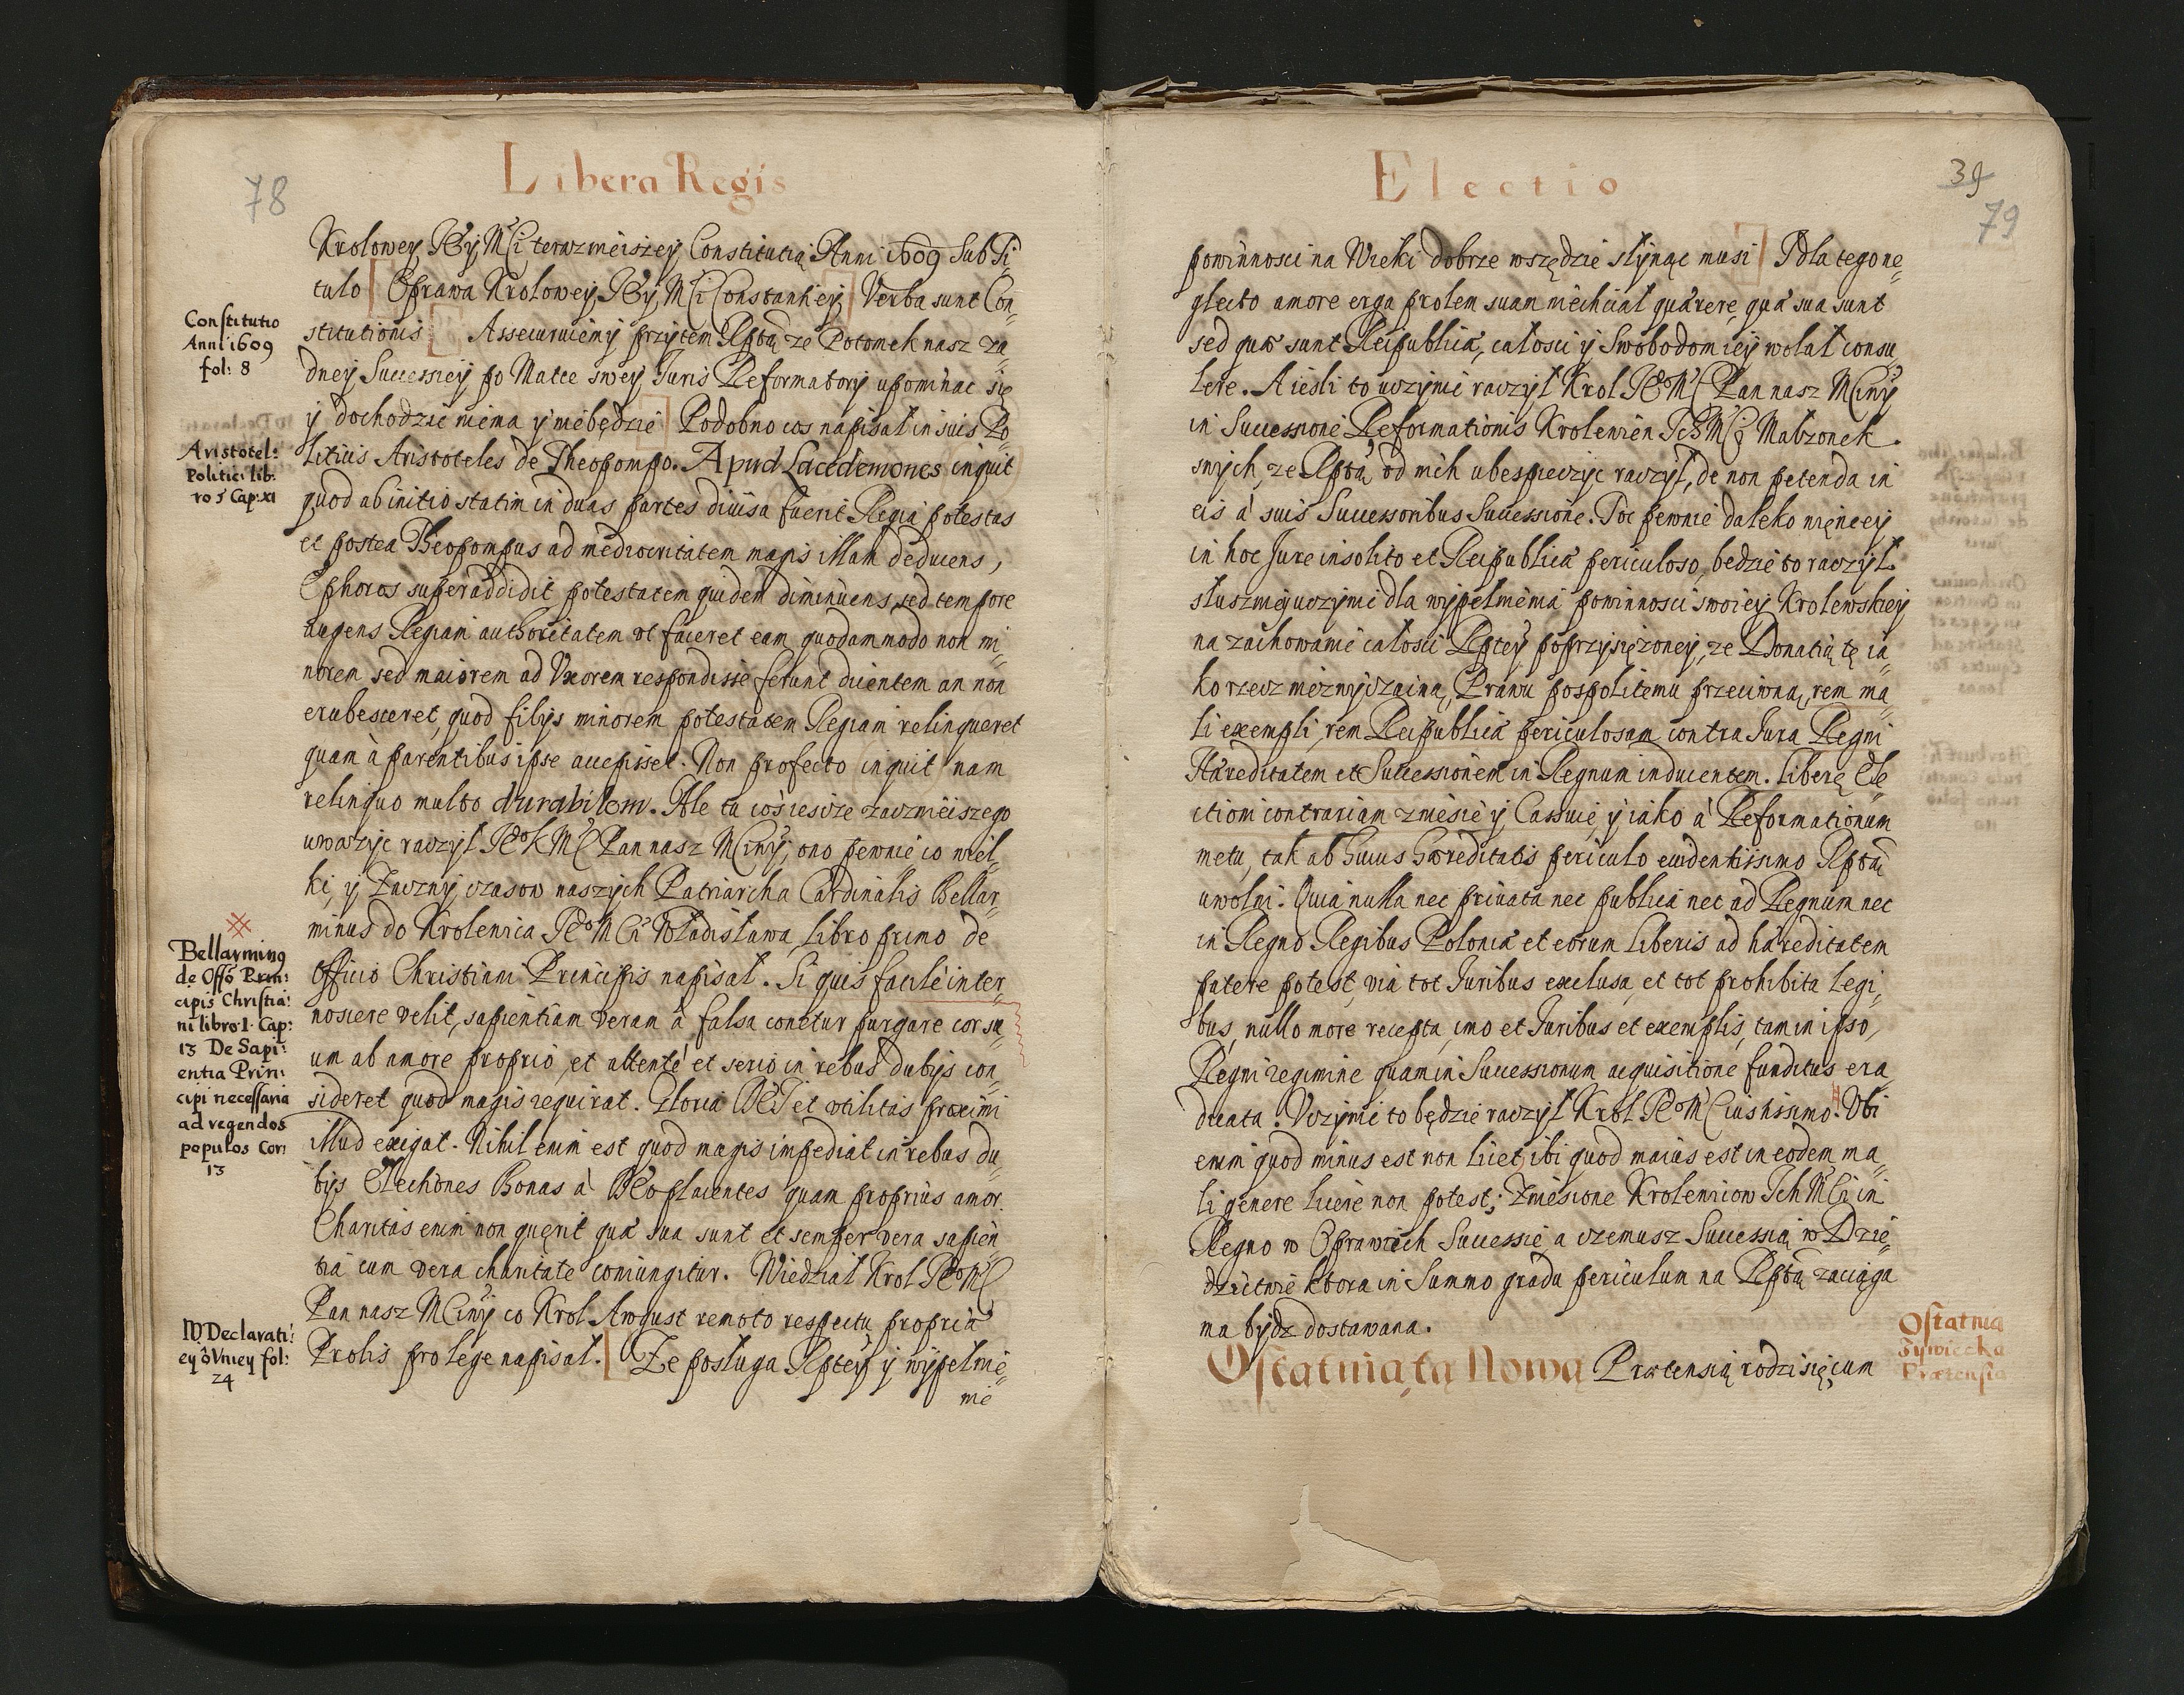 78
Libera Regis
Krolowey JEy MCi terazniejszey Constitutią Anni 1609 Sub Ti„
tulo [Oprawa Krolowey JEy MCi Constantiey] Verba sunt Con„
stitutionis [Assecuruiemy przytem Rptą ze Potomek nasz za„
dney Successiey po Matce swey Juris Reformatory upominac się
y dochodzic niema y niebędzie] Podobno cos napisał in suis Po„
liticis Aristoteles de Theopompo. Apud Lacedemones inquit
quod ab initio statim in duas partes diuisa fuerit Regia potestas
et postea Theopompus ad mediocritatem magis illam deducens,
Ephoros superaddidit potestatem quidem diminuens, sed tempore
augens Regiam authoritatem vt faceret eam quodammodo non mi„
norem sed maiorem ad Vxorem respondisse ferunt dicentem an non
erubesceret, quod filijs minorem potestatem Regiam relinqueret
quam à parentibus ipse accepisset. Non profecto inquit nam
relinquo multo durabilem. Ale tu cos ieszcze zacznieiszego
uwazyc raczył JEoKMC Pan nasz MCiwy, ono pewnie co wiel„
ki, y Zaczny czasow naszych Patriarcha Cardinalis Bellar„
minus do Krolewica JEoMCi Wladisława, libro primo de
Officio Christiani Principis napisał. Si quis facilè inter„
noscere velit, sapientiam veram à falsa conetur purgare cor su„
um ab amore proprio, et attentè et serio in rebus dubijs con„
sideret quod magis requirat. Gloria DEI et vtilitas proximi
illud exigat. Nihil enim est quod magis impediat in rebus du„
bijs Electiones Bonas à DEo placentes quam proprius amor.
Charitas enim non quęrit quæ sua sunt et semper vera sapien„
tia cum vera charitate coniungitur. Wiedział Krol JEoMC
Pan nasz MCiwy co Krol August remoto respectu propriæ
Prolis pro lege napisał. [Ze posługa Rptey y wypełnie„
nie
Constitutio
Anni 1609
fol: 8
Aristotel:
Politic: lib:
ro 5 Cap: XI
Bellarminꝰ
de Offo Prin:
cipis Christia:
ni libro 1. Cap:
13 De Sapi:
entia Prin:
cipi necessaria
ad regendos
populos Cor:
13
W Declarati:
ey o Vniey fol:
24
Electio
39
79
powinnosci na Wieki dobrze wszędzie słynąc musi] I dla tego ne„
glecto amore erga prolem suam niechciał quærere, quæ sua sunt
sed quæ sunt Reipublicæ, całosci y Swobodom iey wolał consu„
lere. A iesli to uczynic raczył Krol JEoMC Pan nasz MCiwy
in Successione Reformationis Krolewien IchMC Małzonek
swych, ze Rptą od nich ubespieczyc raczył, de non petenda in
eis à suis Successoribus Successione. Toc pewnie daleko więncey
in hoc Jure insolito et Reipublicæ periculoso, bedzie to raczył
słuszniey uczynic dla wypełnienia powinnosci swoiey Krolewskiey
na zachowanie całosci Rptey poprzysięzoney, ze Donatią tę ia„
ko rzecz niezwyczainą, Prawu pospolitemu przeciwną, rem ma„
li exempli, rem Reipublicæ periculosam contra Jura Regni
Hæreditatem et Successionem in Regnum inducentem. Liberę Ele„
ctioni contrariam zniesie y Cassuie, y iako à Reformationum
metu, tak ab huius hæreditatis periculo euidentissimo Rptą
uwolni. Quia nulla nec priuata nec publica nec ad Regnum nec
in Regno Regibus Poloniæ et eorum Liberis ad hæreditatem
patere potest via tot Juribus exclusa, et tot prohibita legi„
bus, nullo more recepta, imo et Juribus et exemplis, tam in ipso,
Regni regimine quam in Successionum acquisitione funditus era„
dicata. Vczynic to będzie raczył Krol JEoMC iustissimo. Vbi
enim quod minus est non licet, ibi quod maius est in eodem ma„
li genere licere non potest; Zniesione Krolewicow IchMCi in
Regno w Oprawiech Successie, a czemusz Successią w Dzie„
dzictwie ktora in Summo gradu periculum na Rptą zaciąga
ma bydz dostawana.
Ostatnią tą Nową Prætensią rodzi się, cum
Ostatnia
Prætensia